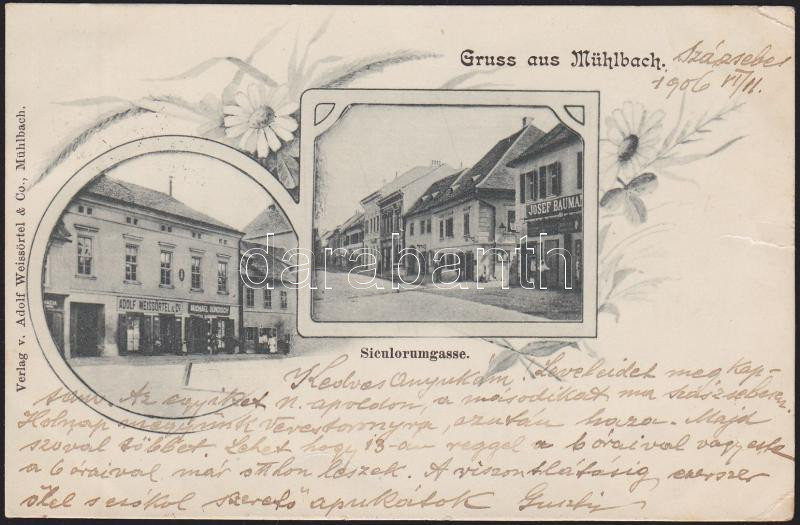 Gruss aus Mühlbach.
Szászsebes
1906 VI/11.
Verlag v. Adolf Weissörtel & Co., Mühlbach.
ADOLF WEISSÖRTEL & Co
MICHAEL
JOSEF BAUMA
darabanth
Siculorumgasse.
Kedves Anyukám. Leveleidet megkap-
tam. Az egyiket N. apoldon, a másodikat ma szászsebesen.
Holnap megyünk Verestoronyra, azután haza. Majd
szóval többet. Lehet hogy 13-án reggel a 6 óraival vagy este
a 6 óraival már otthon leszek. A viszontlátásig, ezerszer
ölel s csókol szerető apukátok Guszti